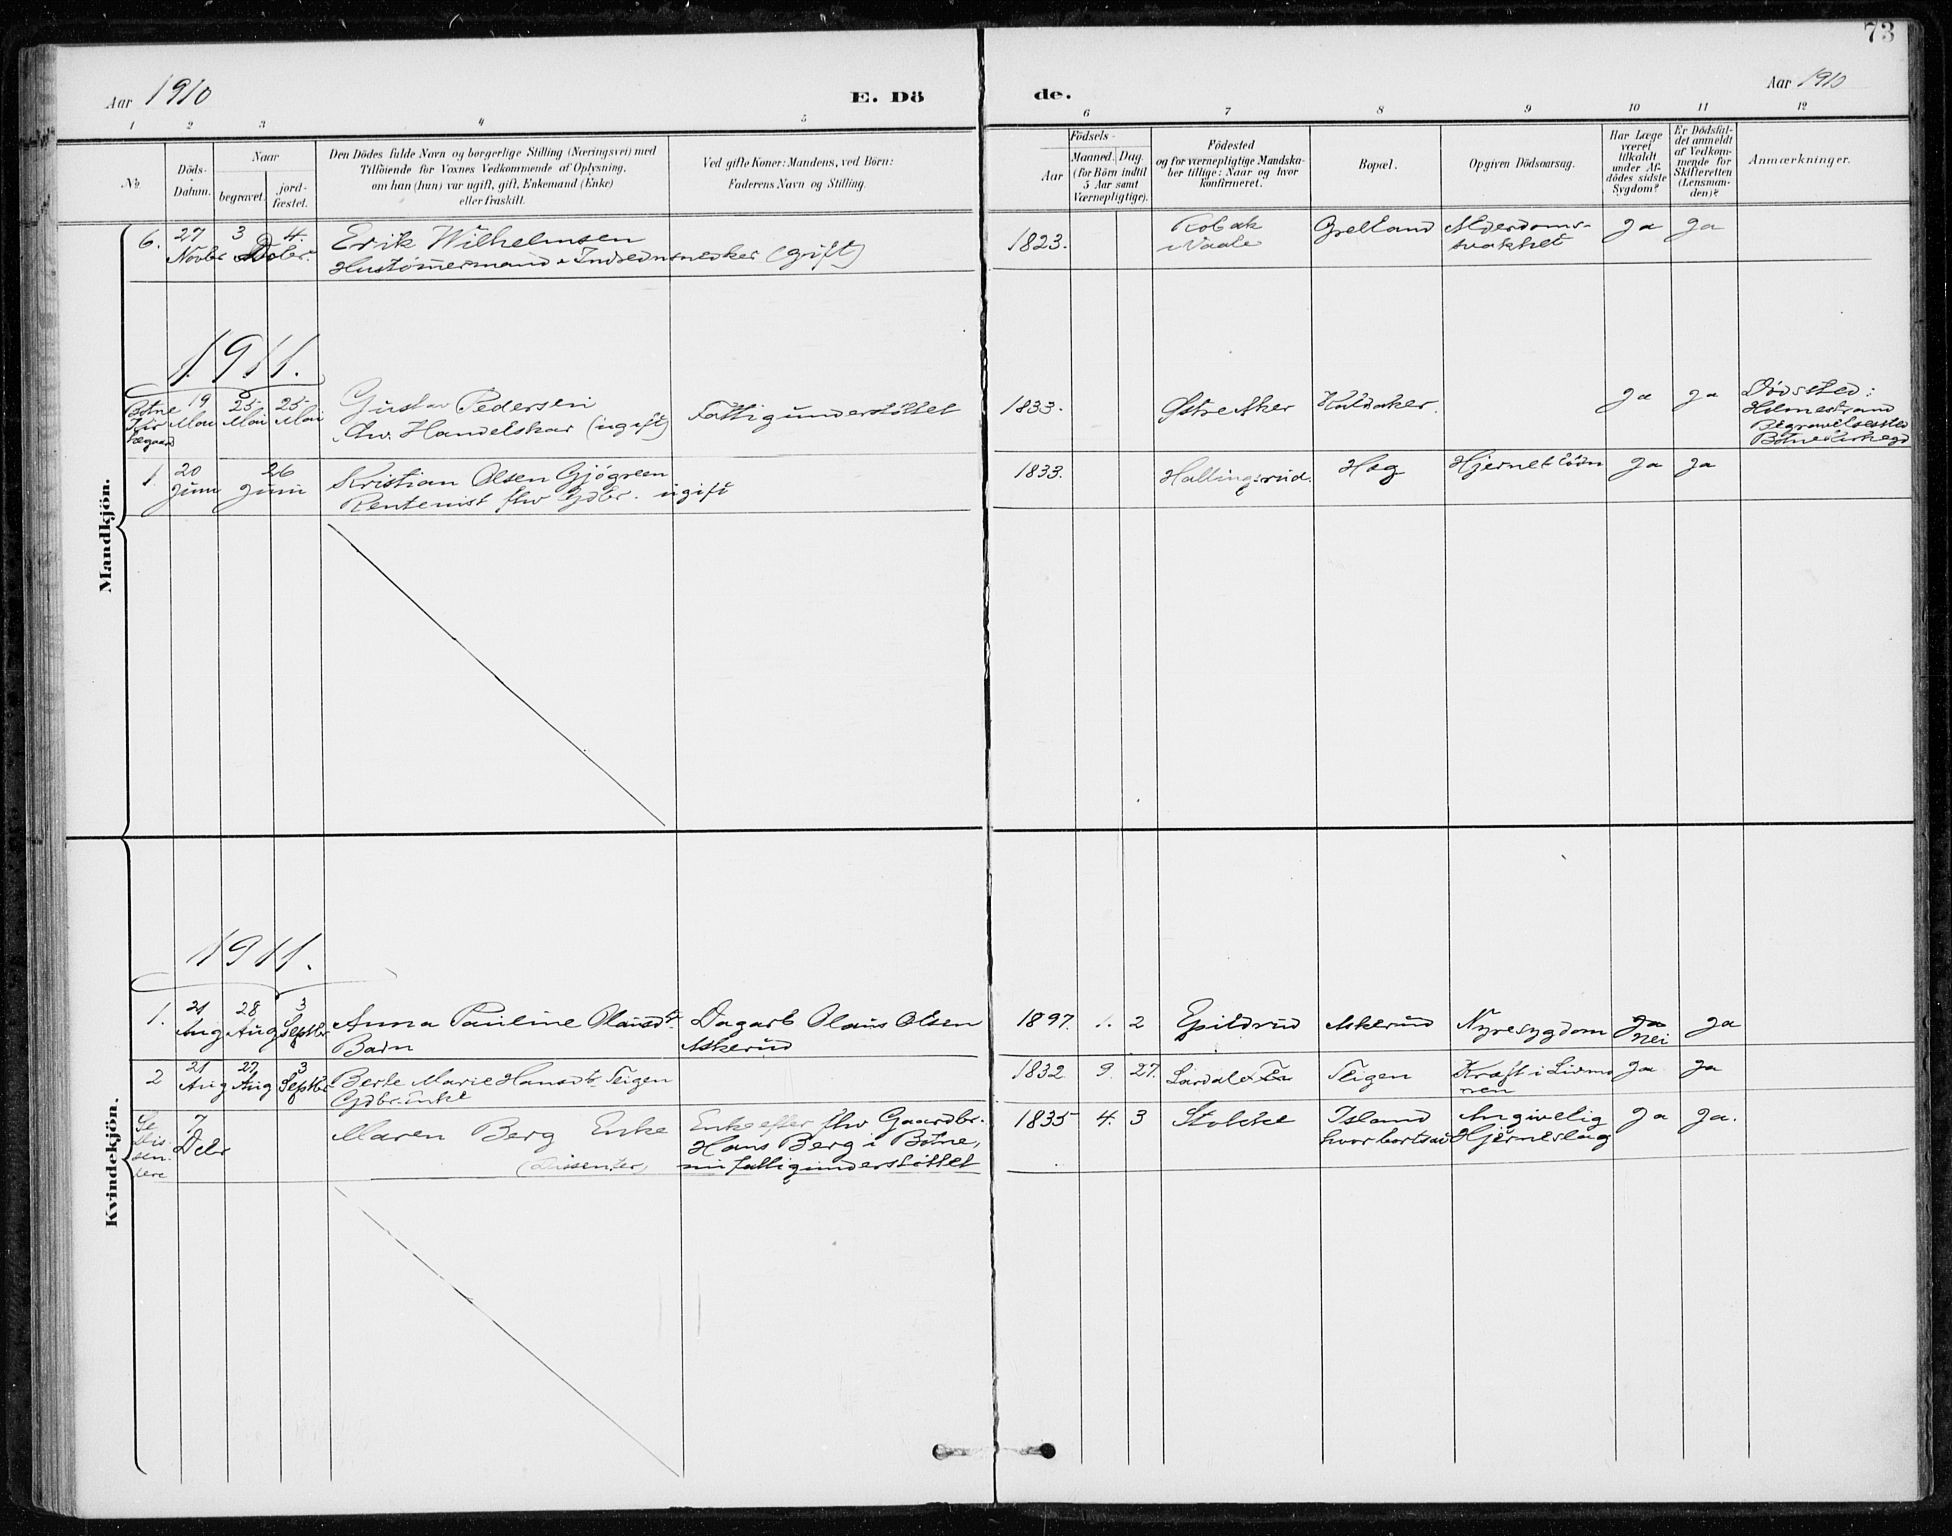 73
Aar 1910
E. Dö
de.
Aar 1910
1 2 3 4 5 6 7 8 9 10 11 12
№
Döds-
Datum.
Naar
begravet.
jord-
fæstet.
Den Dödes fulde Navn og borgerlige Stilling (Næringsvei) med
Tilföiende for Voxnes Vedkommende af Oplysning,
om han (hun) var ugift, gift, Enkemand (Enke)
eller fraskilt.
Ved gifte Koner: Mandens, ved Börn:
Faderens Navn og Stilling.
Födsels-
Aar
Maaned. Dag.
(for Börn indtil
5 Aar samt
Værnepligtige).
Födested
og for værnepligtige Mandska-
ber tillige: Naar og hvor
konfirmeret.
Bopæl.
Opgiven Dödsaarsag.
Har Læge
været
tilkaldt
under Af-
dödes sidste
Sygdom?
Er Dödsfal-
det anmeldt
af Vedkom-
mende for
Skifteretten
(Lensman-
den)?
Anmærkninger.
Mandkjön.
6. 27 Novbr 3 4 Dcbr.
Erik Wilhelmsen
Hustømmermand & Indrednsnedker (gift)
1823.
Kobak
i Vaale
Grelland
Alderdoms-
svakhet
Ja Ja
1911.
Botne
Kir
kegaard
19 Mai 25 Mai 25 Mai
Gustav Pedersen
fhv. Handelskar (ugift)
Fattigunderstöttet
1833.
Østre Aker
Kaldaker.
Ja Ja
Dødssted:
Holmestrand
Begravelsessted
Botne Kirkegd
1. 20 Juni 26 Juni
Kristian Olsen Gjøgreen
Rentenist fhv Gdbr. ugift
1833.
Hallingsrud.
Hag
Hjerneblödn
Ja Ja
Kvindekjön.
1911.
1. 21 Aug 28 Aug 3 Septbr
Anna Pauline Olausdt.
Barn
Dagarb Olaus Olsen
Askerud
1897. 1. 2
Epildrud
Askerud
Nyresygdom
Ja
Nei
Ja
2 21 Aug 27 Aug 3 Septbr
Berte Marie Hansdt. Teigen
Gdbr. Enke
1832 9. 27.
Lardal
Teigen
Kræft i Livmo
ren
Ja Ja
Se
Dis-
sen-
tere
7 Dcbr
Maren Berg Enke
(Dissenter)
Enke efter fhv Gaardbr.
Hans Berg i Botne,
nu fattigunderstöttet
1835 4. 3
Stokke
Island
hvor bortsat
Angivelig
Hjerneslag
Ja Ja.